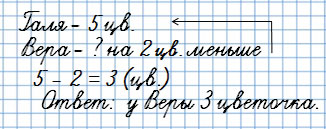 Галя – 5 цв.
Вера – ? на 2 цв. меньше
5 – 2 = 3 (цв.)
Ответ: у Веры 3 цветочка.